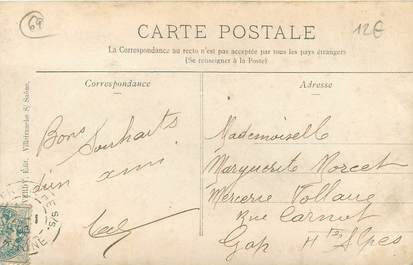 69
12€
CARTE POSTALE
La Correspondance au recto n'est pas acceptée par tous les pays étrangers
(Se renseigner à la Poste)
Correspondance
Adresse
Bons Souhaits
d'un ami
Mademoiselle
Marguerite Morcet
Mercerie Vollaire
Rue Carnot
Gap Htes Alpes
Édit. Villefranche S/ Saône.